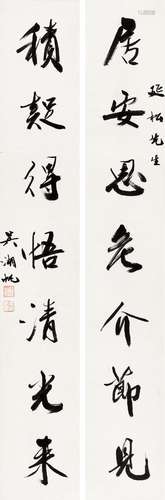 延松先生
居安思危介節見
積疑得悟清光来
吴湖帆